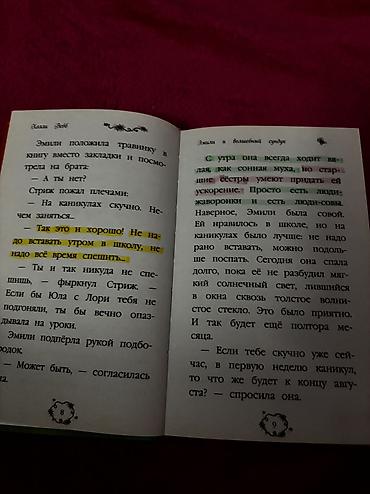 Холли Вебб
Эмили положила травинку в
книгу вместо закладки и посмо-
трела на брата:
— А ты нет?
Стриж пожал плечами:
— На каникулах скучно. Не-
чем заняться...
— Так это и хорошо! Не на-
до вставать утром в школу, не
надо всё время спешить...
— Ты и так никуда не спе-
шишь, — фыркнул Стриж. —
Если бы Юла с Лори тебя не
подгоняли, ты бы вечно опаз-
дывала на уроки.
Эмили подпёрла рукой подбо-
родок.
— Может быть, — согласилась
на.
8
Эмили и волшебный сундук
С утра она всегда ходит вя-
лая, как сонная муха, но стар-
шие сёстры умеют придать ей
ускорение. Просто есть люди-
жаворонки и есть люди-совы.
Наверное, Эмили была совой.
Ей нравилось в школе, но на
каникулах было лучше: не надо
рано вставать, можно подоль-
ше поспать. Сегодня она спала
долго, пока её не разбудил мяг-
кий солнечный свет, лившийся
в окна сквозь толстое волни-
стое стекло. Это было приятно.
И так будет ещё полтора ме-
сяца.
— Если тебе скучно уже сей-
час, в первую неделю каникул,
то что же будет к концу авгу-
ста? — спросила она.
9